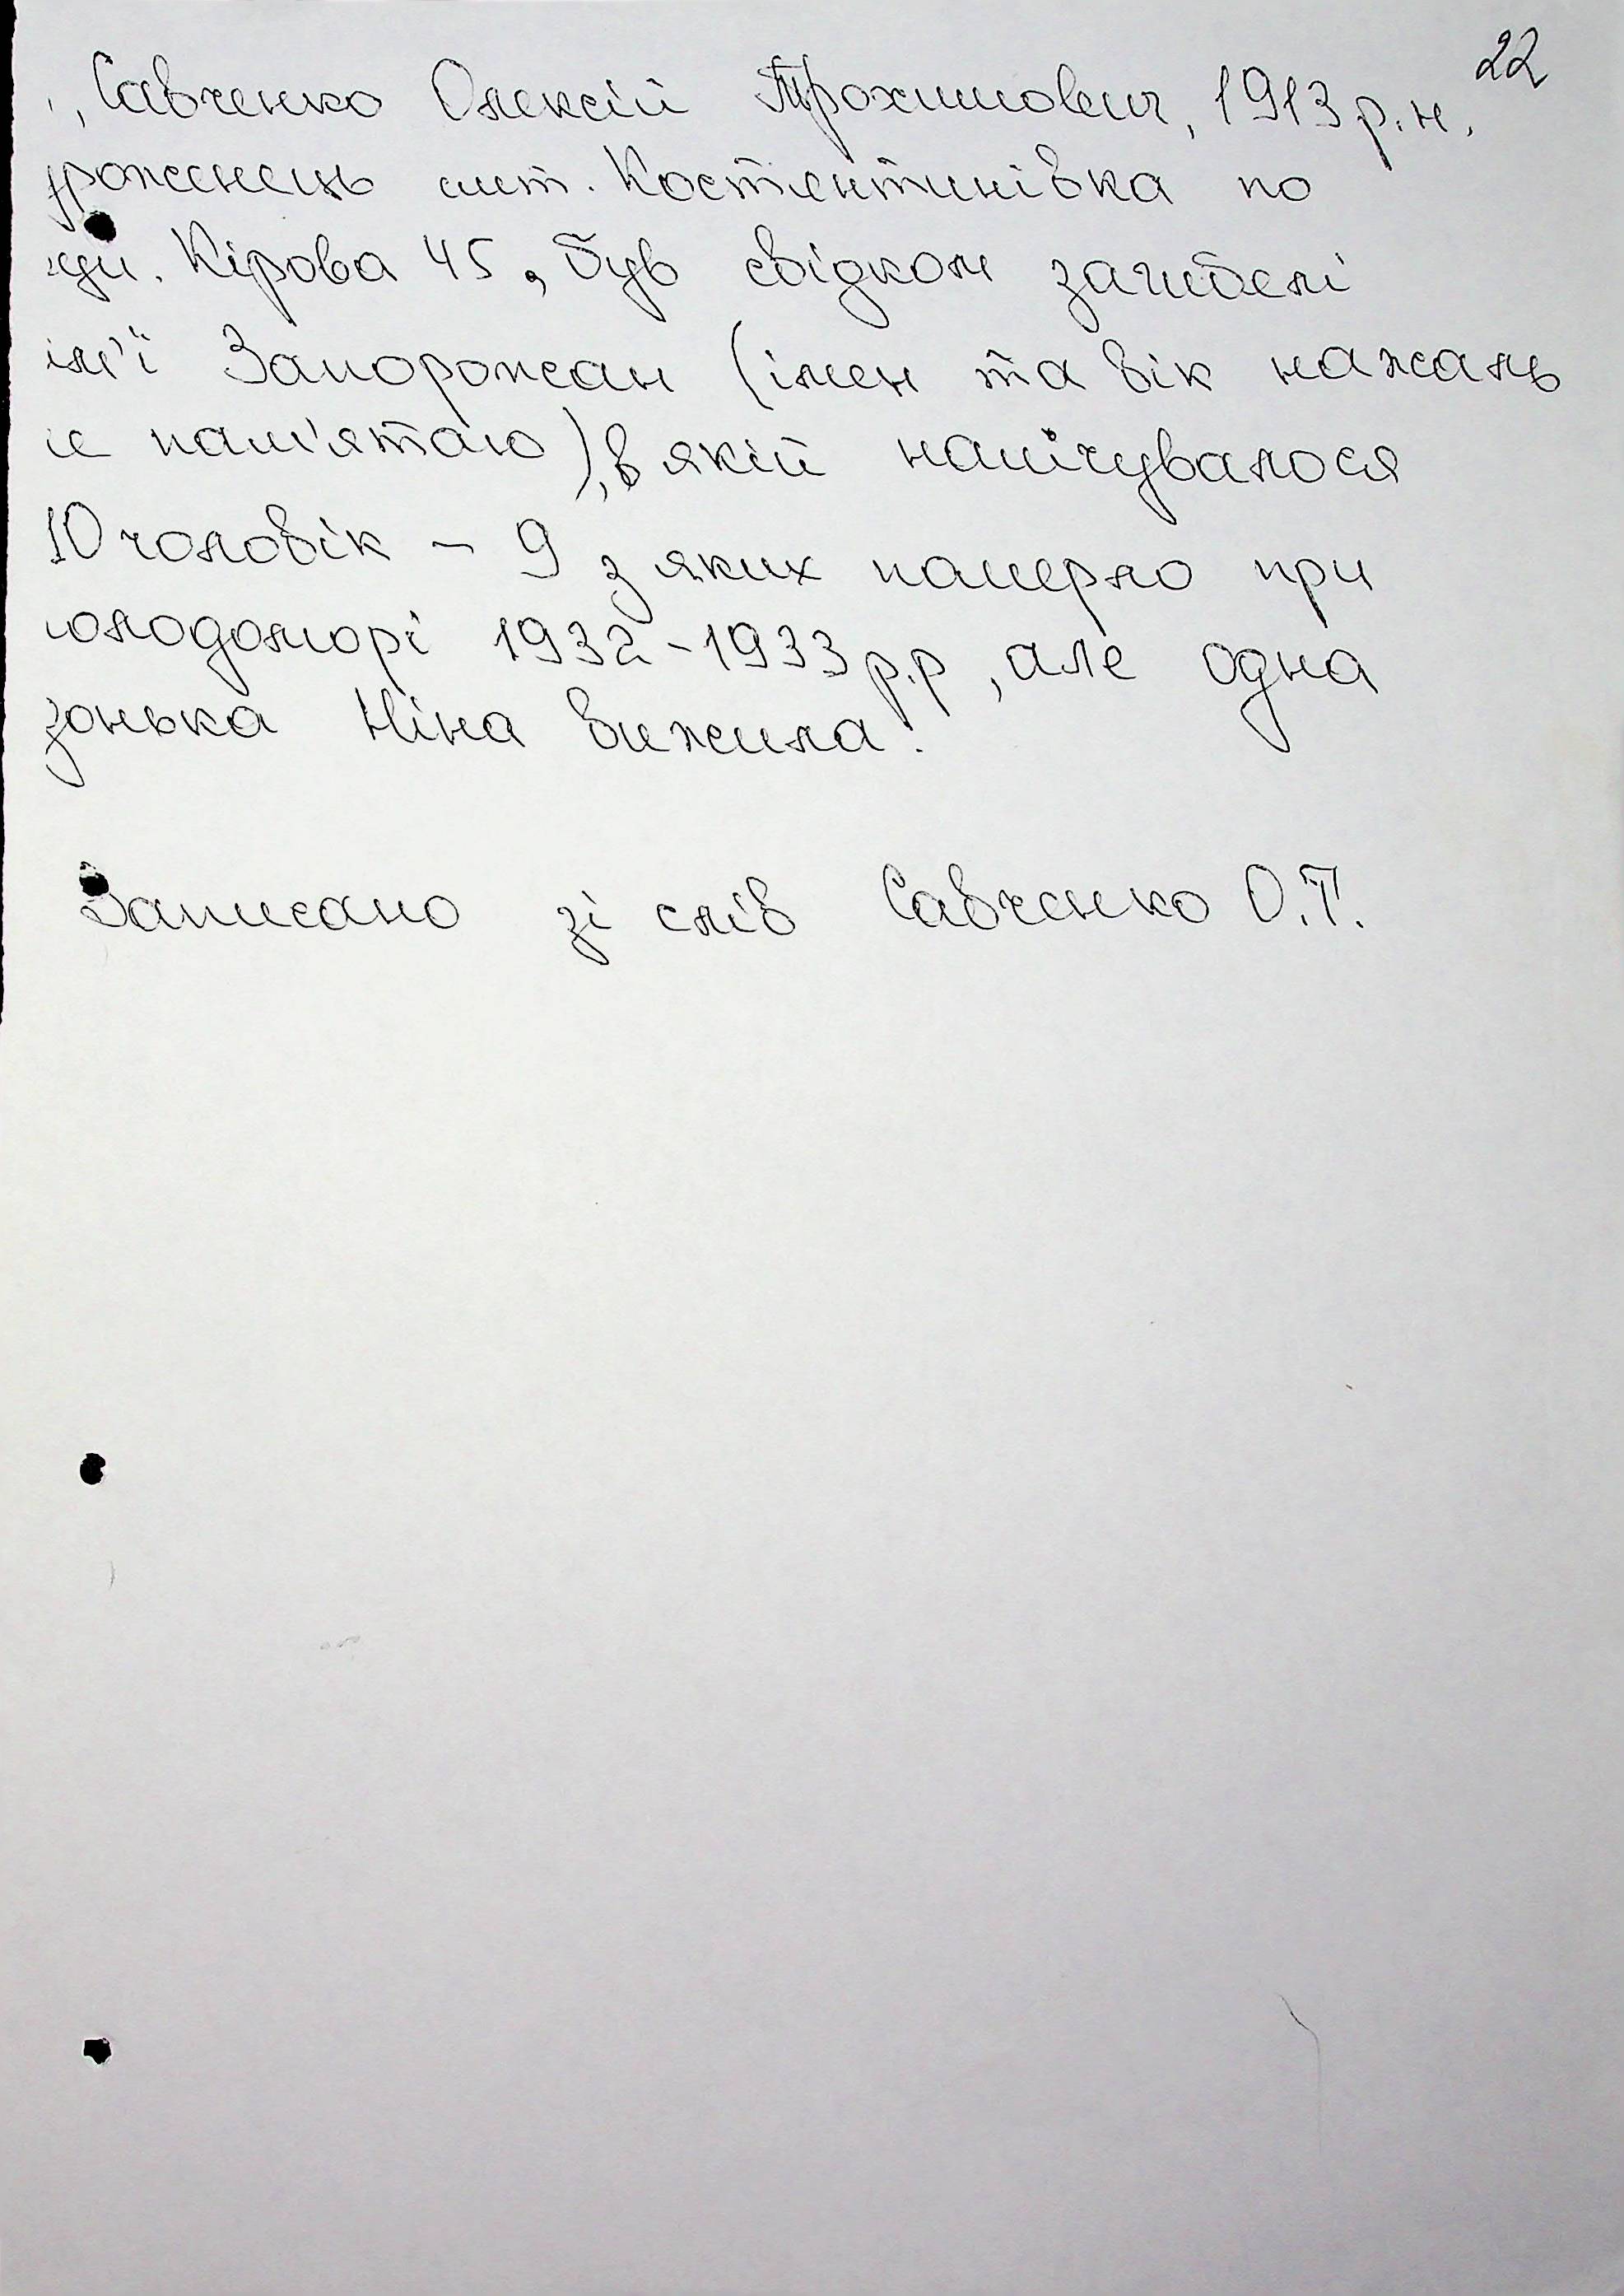 22
, Савченко Олексій Трохимович, 1913 р.н.
уроженець смт. Костянтинівка по
вул. Кірова 45, був свідком загибелі
сім'ї Запорожсан (імен та вік нажаль
не пам'ятаю), в якій налічувалося
10 чоловік – 9 з яких померло при
голодоморі 1932-1933 р.р, але одна
донька Ніна вижила!
Записано зі слів Савченко О.Т.